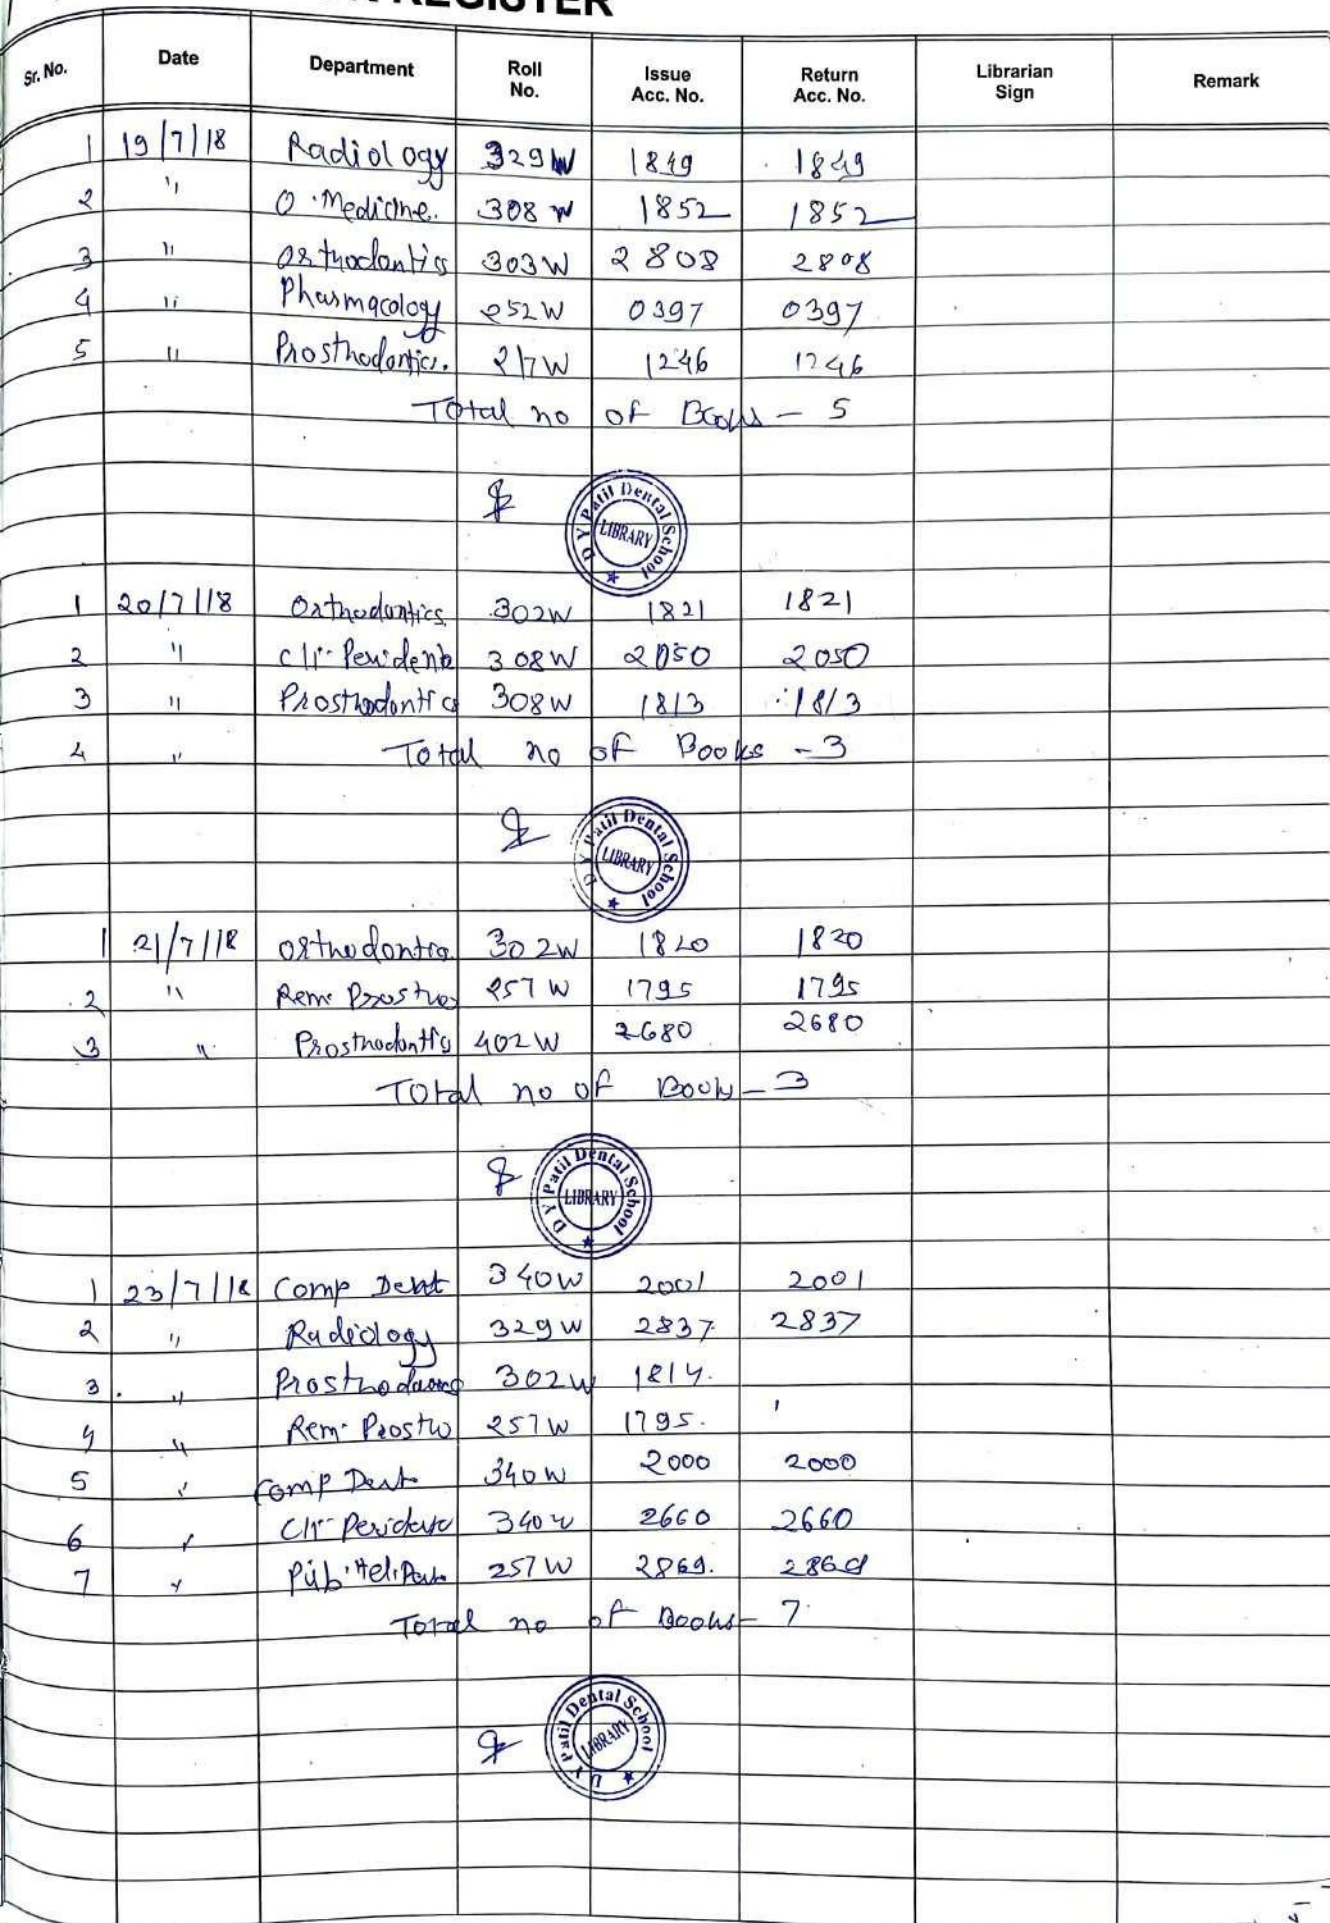 REGISTER
Sr. No. Date Department Roll No. Issue Acc. No. Return Acc. No. Librarian Sign Remark
1 19/7/18 Radiology 329W 1849 1849
2 " O. Medicine. 308 W 1852 1852
3 " Orthodontics 303W 2808 2808
4 " Pharmacology 252W 0397 0397
5 " Prosthodontics. 217W 1246 1246
Total no of Books - 5
D Y Patil Dental School LIBRARY
1 20/7/18 Orthodontics 302W 1821 1821
2 " Cli- Peridente 308W 2050 2050
3 " Prosthodontics 308W 1813 1813
4 " Total no of Books - 3
D Y Patil Dental School LIBRARY
1 21/7/18 Orthodontics 302W 1820 1820
2 " Rem. Prostho 257W 1795 1795
3 " Prosthodontics 402W 2680 2680
Total no of Books - 3
D Y Patil Dental School LIBRARY
1 23/7/18 Comp Dent 340W 2001 2001
2 " Radiology 329W 2837 2837
3 " 302W 1814.
4 " Rem. Prostho 257W 1795.
5 " Comp Dent 340W 2000 2000
6 " Cli- 340W 2660 2660
7 " Pub. 257W 2869. 2869
Total no of Books - 7
D Y Patil Dental School LIBRARY